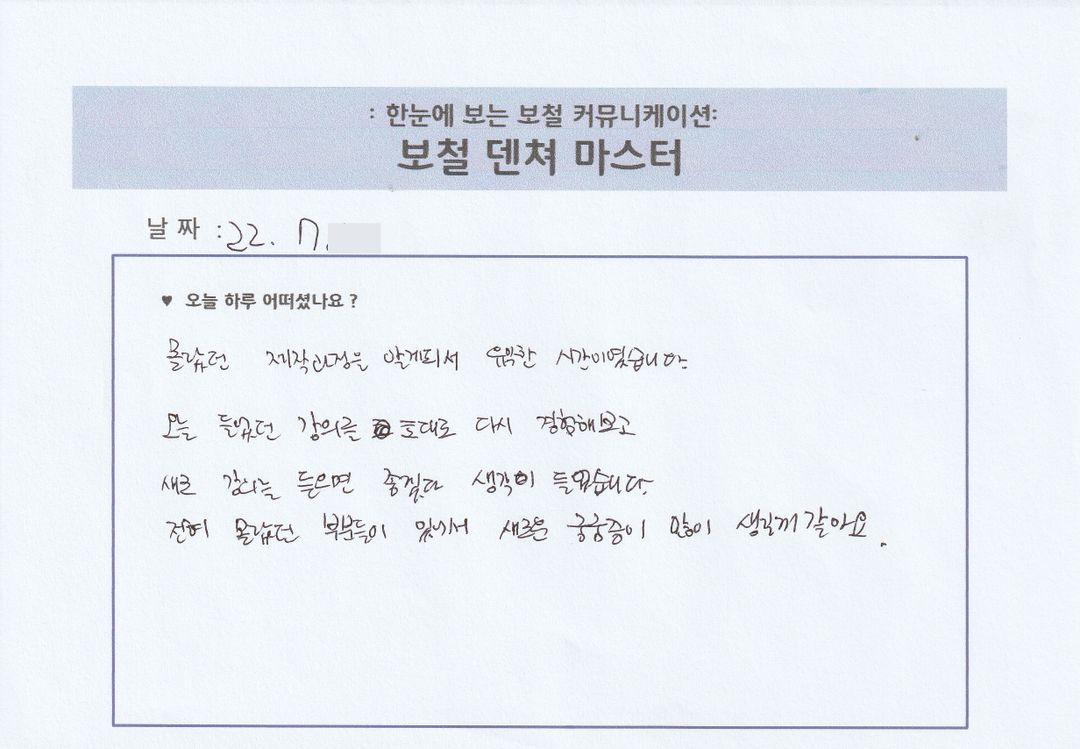 : 한눈에 보는 보철 커뮤니케이션:
보철 덴쳐 마스터
날 짜 : 22. 7.
♥ 오늘 하루 어떠셨나요 ?
몰랐던 제작과정을 알게되서 유익한 시간이였습니다.
오늘 들었던 강의를 토대로 다시 경험해보고
새로 강의를 들으면 좋겠다 생각이 들었습니다.
전혀 몰랐던 부분들이 있어서 새로운 궁궁증이 많이 생길꺼 같아요.